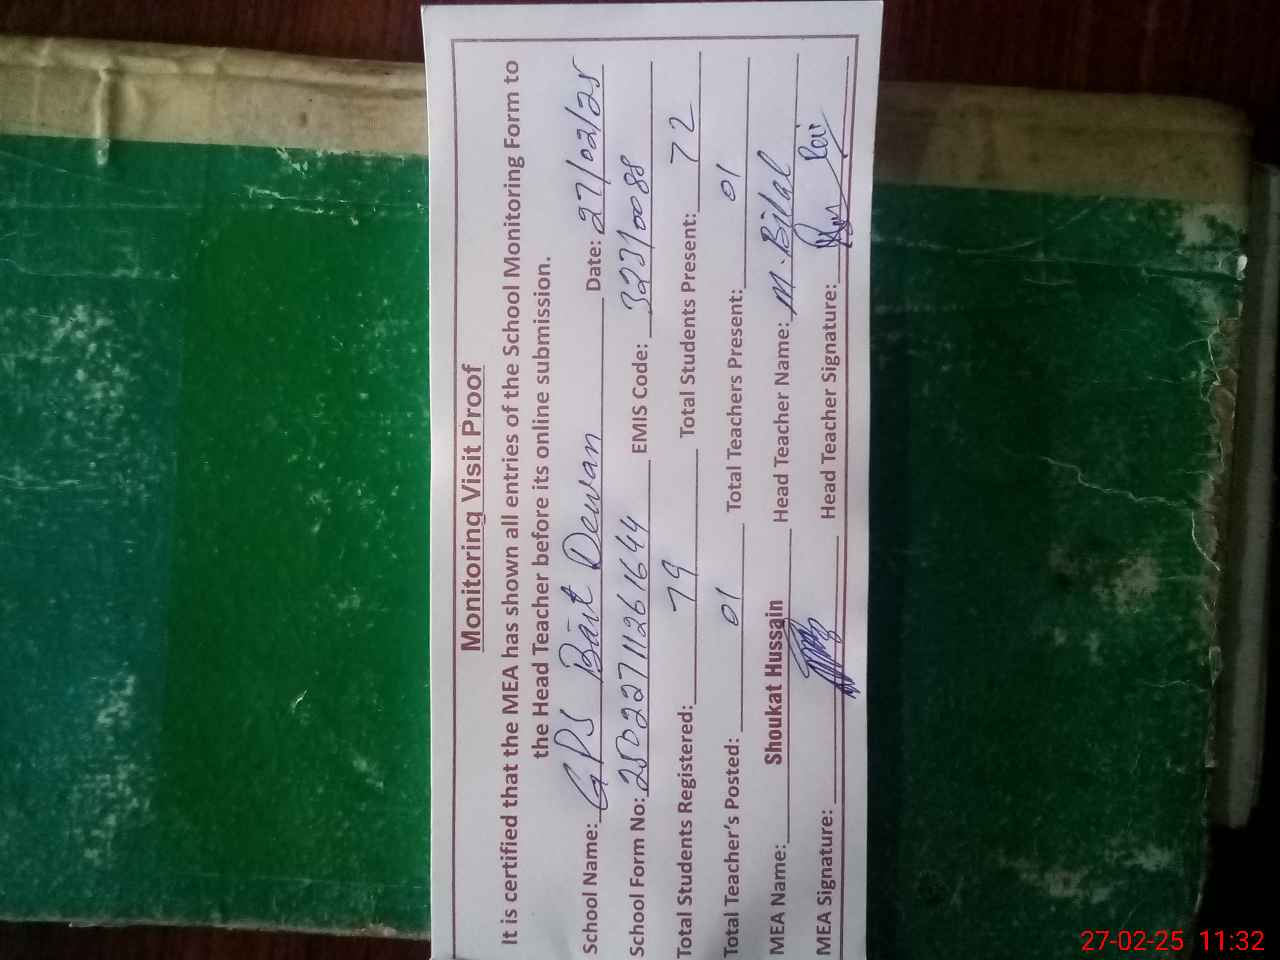 Monitoring Visit Proof
It is certified that the MEA has shown all entries of the School Monitoring Form to
the Head Teacher before its online submission.
School Name: GPS Bait Dewan Date: 27/02/25
School Form No: 25022711261644 EMIS Code: 32310088
Total Students Registered: 79 Total Students Present: 72
Total Teacher's Posted: 01 Total Teachers Present: 01
MEA Name: Shoukat Hussain Head Teacher Name: M. Bilal
MEA Signature: Head Teacher Signature:
27-02-25 11:32